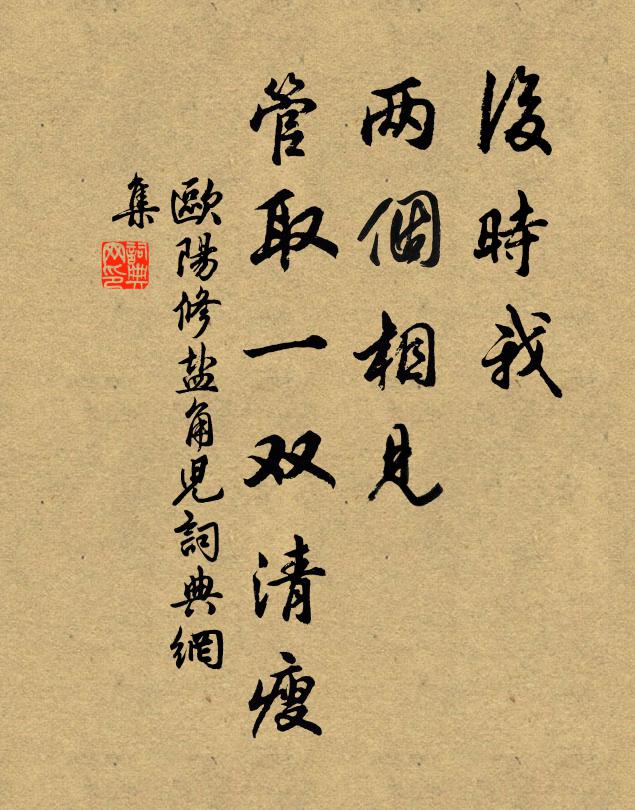 後時我
两個相見
管取一双清瘦
歐陽修盐角児詞典網
集
詞典
网印